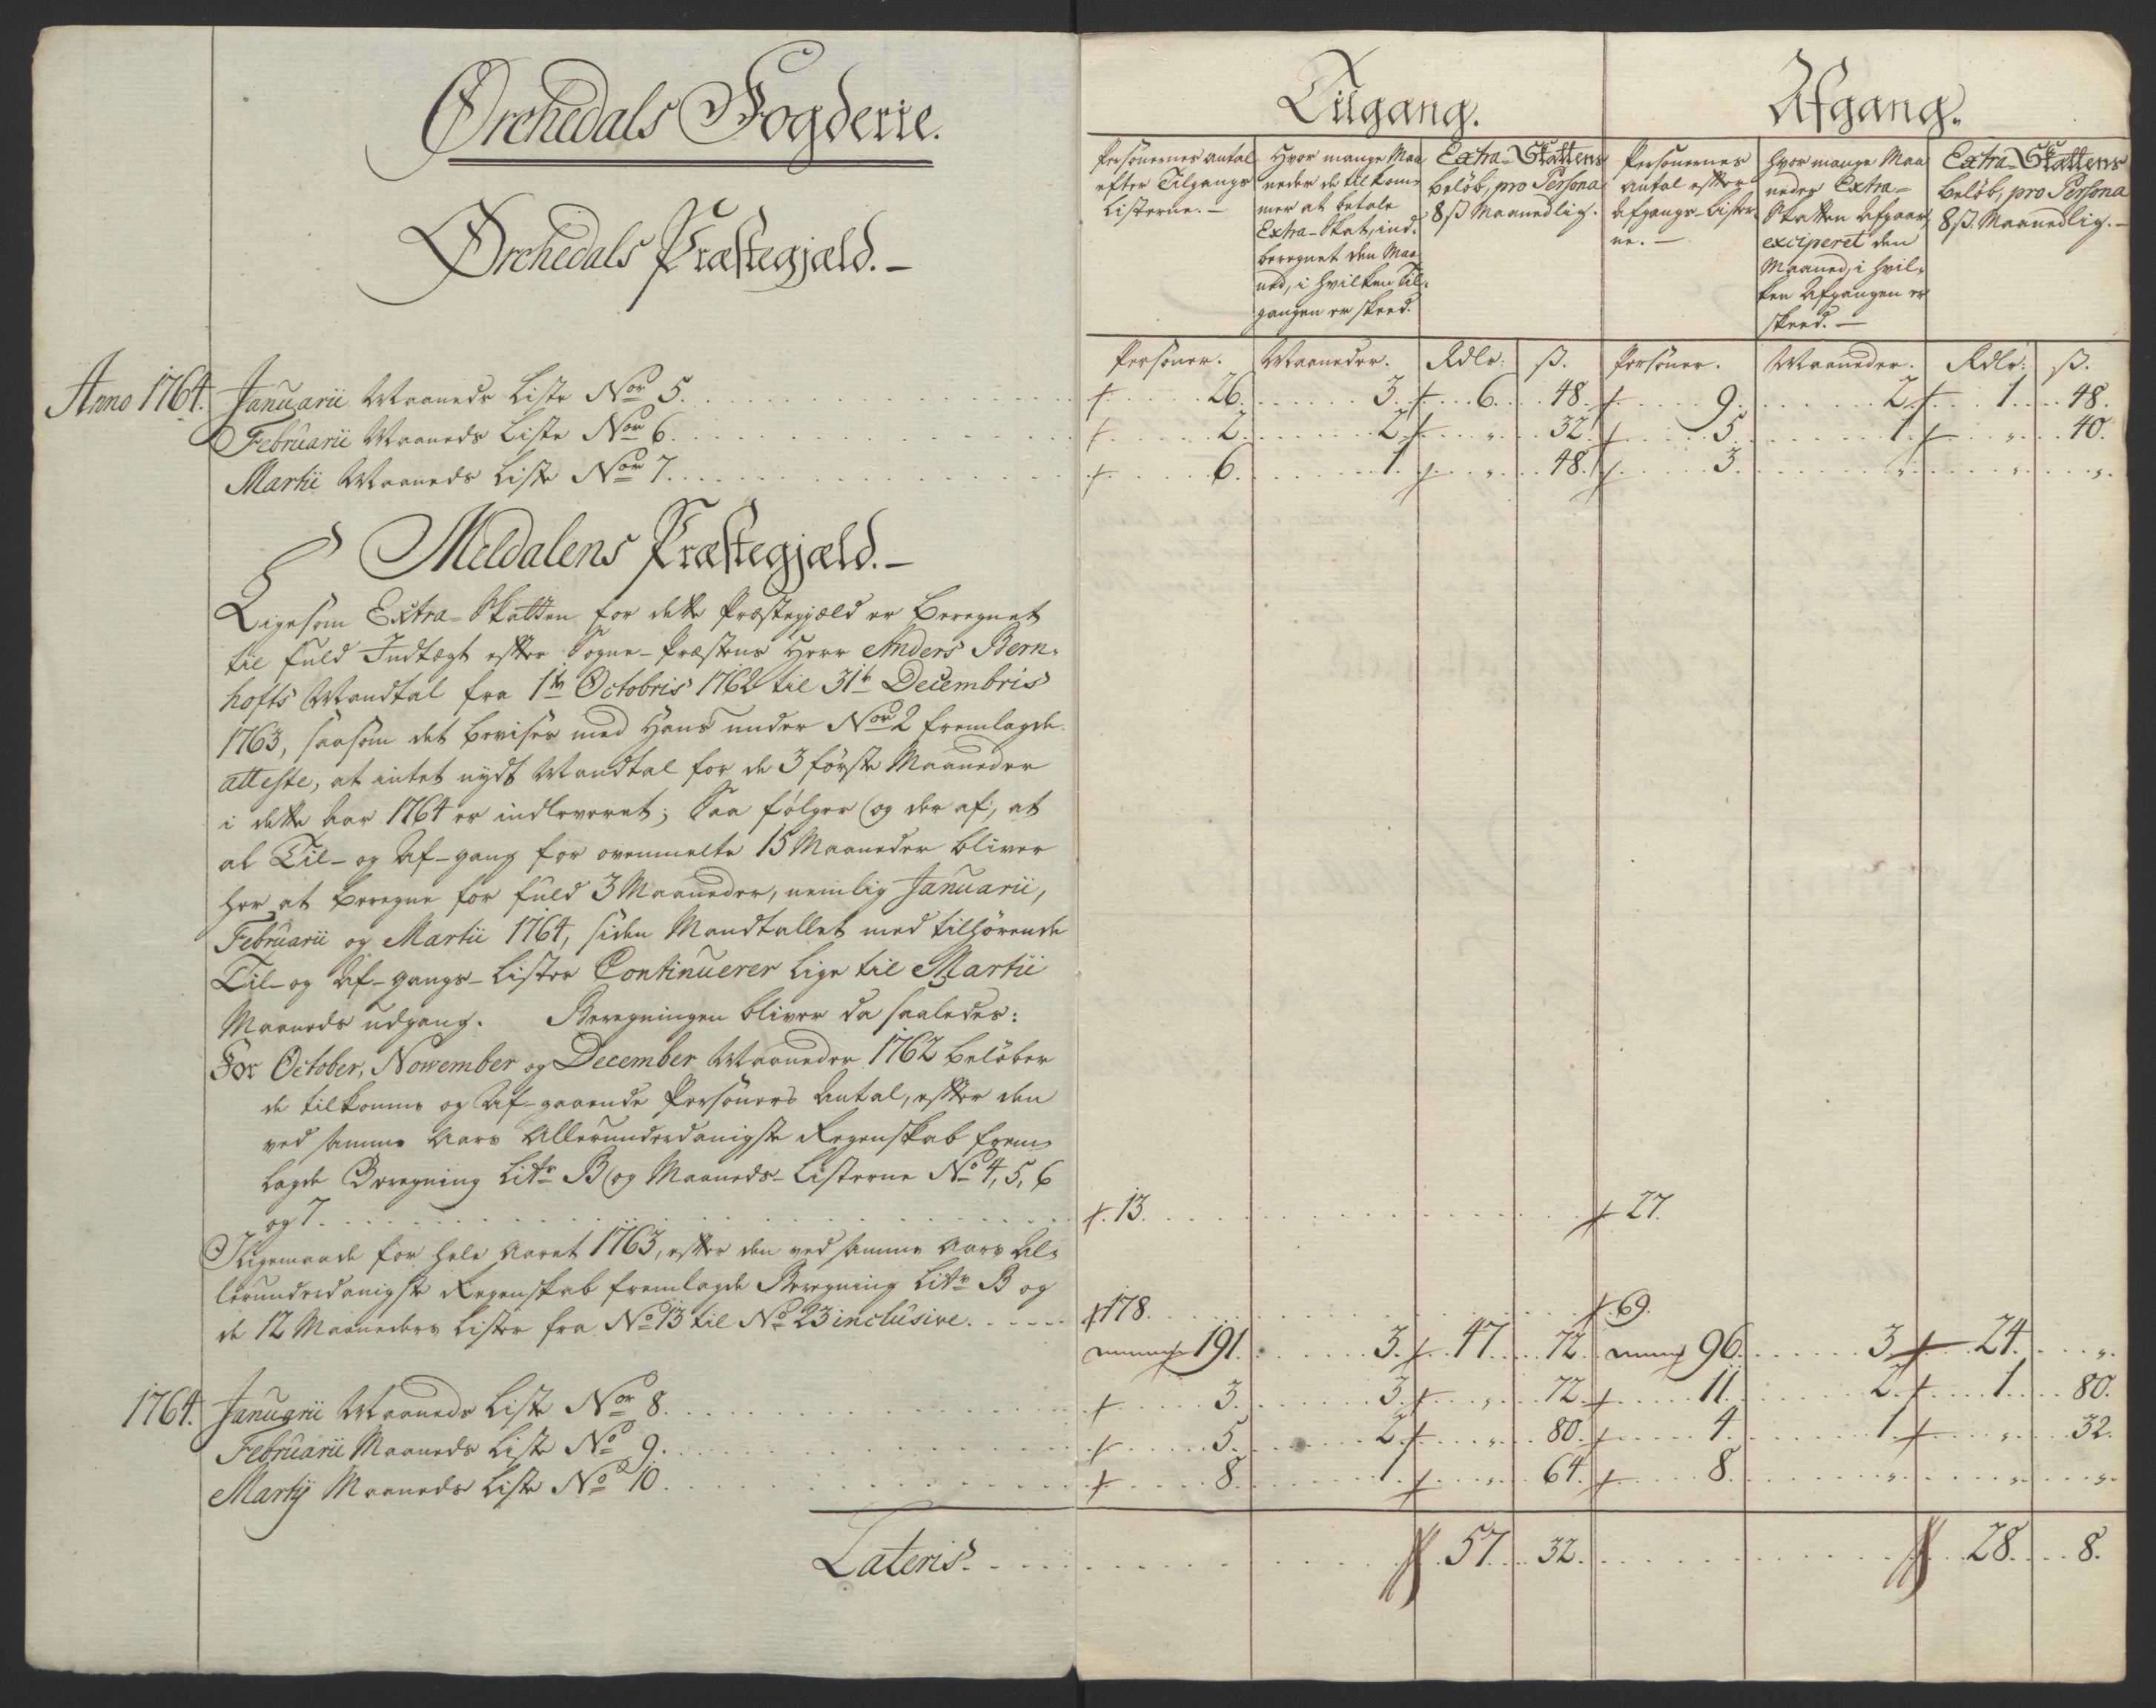 Ørchedals Fogderie.
Ørchedals Præstegjæld. –
Anno 1764. Januarii Maaneds Liste Nor 5.
Februarii Maaneds Liste Nor 6.
Martii Maaneds Liste Nor 7.
Meldalens Præstegjæld. –
Ligesom Extra-Skatten for dette Præstegjæld er beregnet
til fuld Indtægt efter Sogne-Præstens Herr Anders Bern-
hofts Mandtal fra 1te Octobris 1762 til 31te Decembris
1763, saasom det bevises med Hans under Nor 2 fremlagde
atteste, at intet nydt Mandtal for de 3 første Maaneder
i dette Aar 1764 er indleveret; Saa følger og der af, at
al Til- og Af-gang for ovenmelte 15 Maaneder bliver
her at beregne for fuld 3 Maaneder, nemlig Januarii,
Februarii og Martii 1764, siden Mandtallet med tilhørende
Til- og Af-gangs-Lister Continuerer lige til Martii
Maaneds udgang. Beregningen bliver da saaledes:
For October, November og December Maaneder 1762 beløber
de tilkomne og Af-gaaende Personers Antal, efter den
ved samme Aars Allerunderdanigste Regenskab frem-
lagde Beregning Litr B og Maaneds-Listerne No 4, 5, 6
og 7.
Ligemaade for hele Aaret 1763, efter den ved samme Aars Al-
lerunderdanigste Regenskab fremlagde Beregning Litr B og
de 12 Maaneders Lister fra No 13 til No 23 inclusive.
1764. Januarii Maaneds Liste Nor 8.
Februarii Maaneds Liste No 9.
Martij Maaneds Liste No 10.
Lateris.
Tilgang. Afgang.
Personernes antal efter Tilgangs Listerne. –
Hvor mange Maaneder de tilkommer at betale Extra-Skat, indberegnet den Maaned, i hvilken Tilgangen er skeed.
Extra-Skattens beløb, pro Persona 8 ß Maanedlig.
Personernes Antal efter Afgangs-Listerne. –
Hvor mange Maaneder Extra-Skatten Afgaar, exciperet den Maaned, i hvilken Afgangen er skeed. –
Extra-Skattens beløb, pro Persona 8 ß. Maanedlig. –
Personer. Maaneder. Rdlr: ß. Personer. Maaneder. Rdlr: ß.
26. 3. 6. 48. 9. 2. 1. 48.
2. 2. „ 32. 5. 1. „ 40.
6. 1. „ 48. 3. „ „ „
13. 27.
178. 69.
191. 3. 47. 72. 96. 3. 24. „
3. 3. „ 72. 11. 2. 1. 80.
5. 2. „ 80. 4. 1. „ 32.
8. 1. „ 64. 8. „ „ „
57. 32. 28. 8.